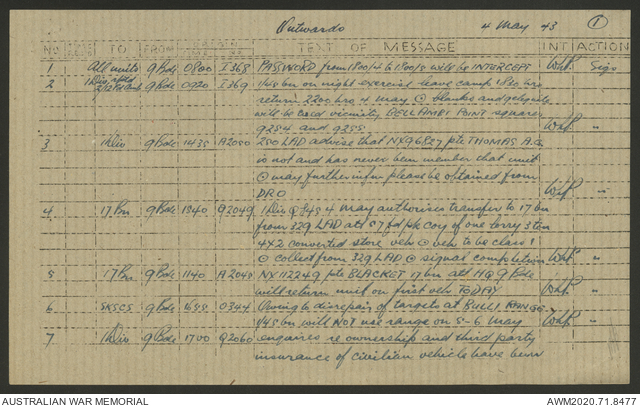 Outwards 4 May 43 1
No TO FROM ORIGIN TEXT OF MESSAGE INT ACTION
1 All units 9 Bde 0800 I368 PASSWORD from 1800/4 to 1800/5 will be INTERCEPT Sigs
2 1 Div 9 Bde 0920 I369 1/45 bn on night exercise leave camp 1830 hrs
return 2200 hrs 4 May ⊙ blanks and gelignite
will be used vicinity BELLAMBI POINT square
9254 and 9255 "
3 1 Div 9 Bde 1435 A2050 280 LAD advise that NX96827 pte THOMAS A.G.
is not and has never been member that unit
⊙ may further infm please be obtained from
DRO "
4 17 Bn 9 Bde 1540 Q2049 1 Div Q8345 4 May authorises transfer to 17 bn
from 329 LAD att 57 fd pk coy of one lorry 3 ton
4x2 converted store veh ⊙ veh to be class 1
⊙ collect from 329 LAD ⊙ signal completion "
5 17 Bn 9 Bde 1140 A2045 NX112249 pte BLACKET 17 bn att HQ 9 Bde
will return unit on first veh TODAY "
6 SKSCS 9 Bde 1655 0344 Owing to disrepair of targets at BULLI RANGE
1/45 bn will NOT use range on 5-6 May "
7 1 Div 9 Bde 1700 Q2060 enquiries re ownership and third party
insurance of civilian vehicle have been
AUSTRALIAN WAR MEMORIAL AWM2020.71.8477